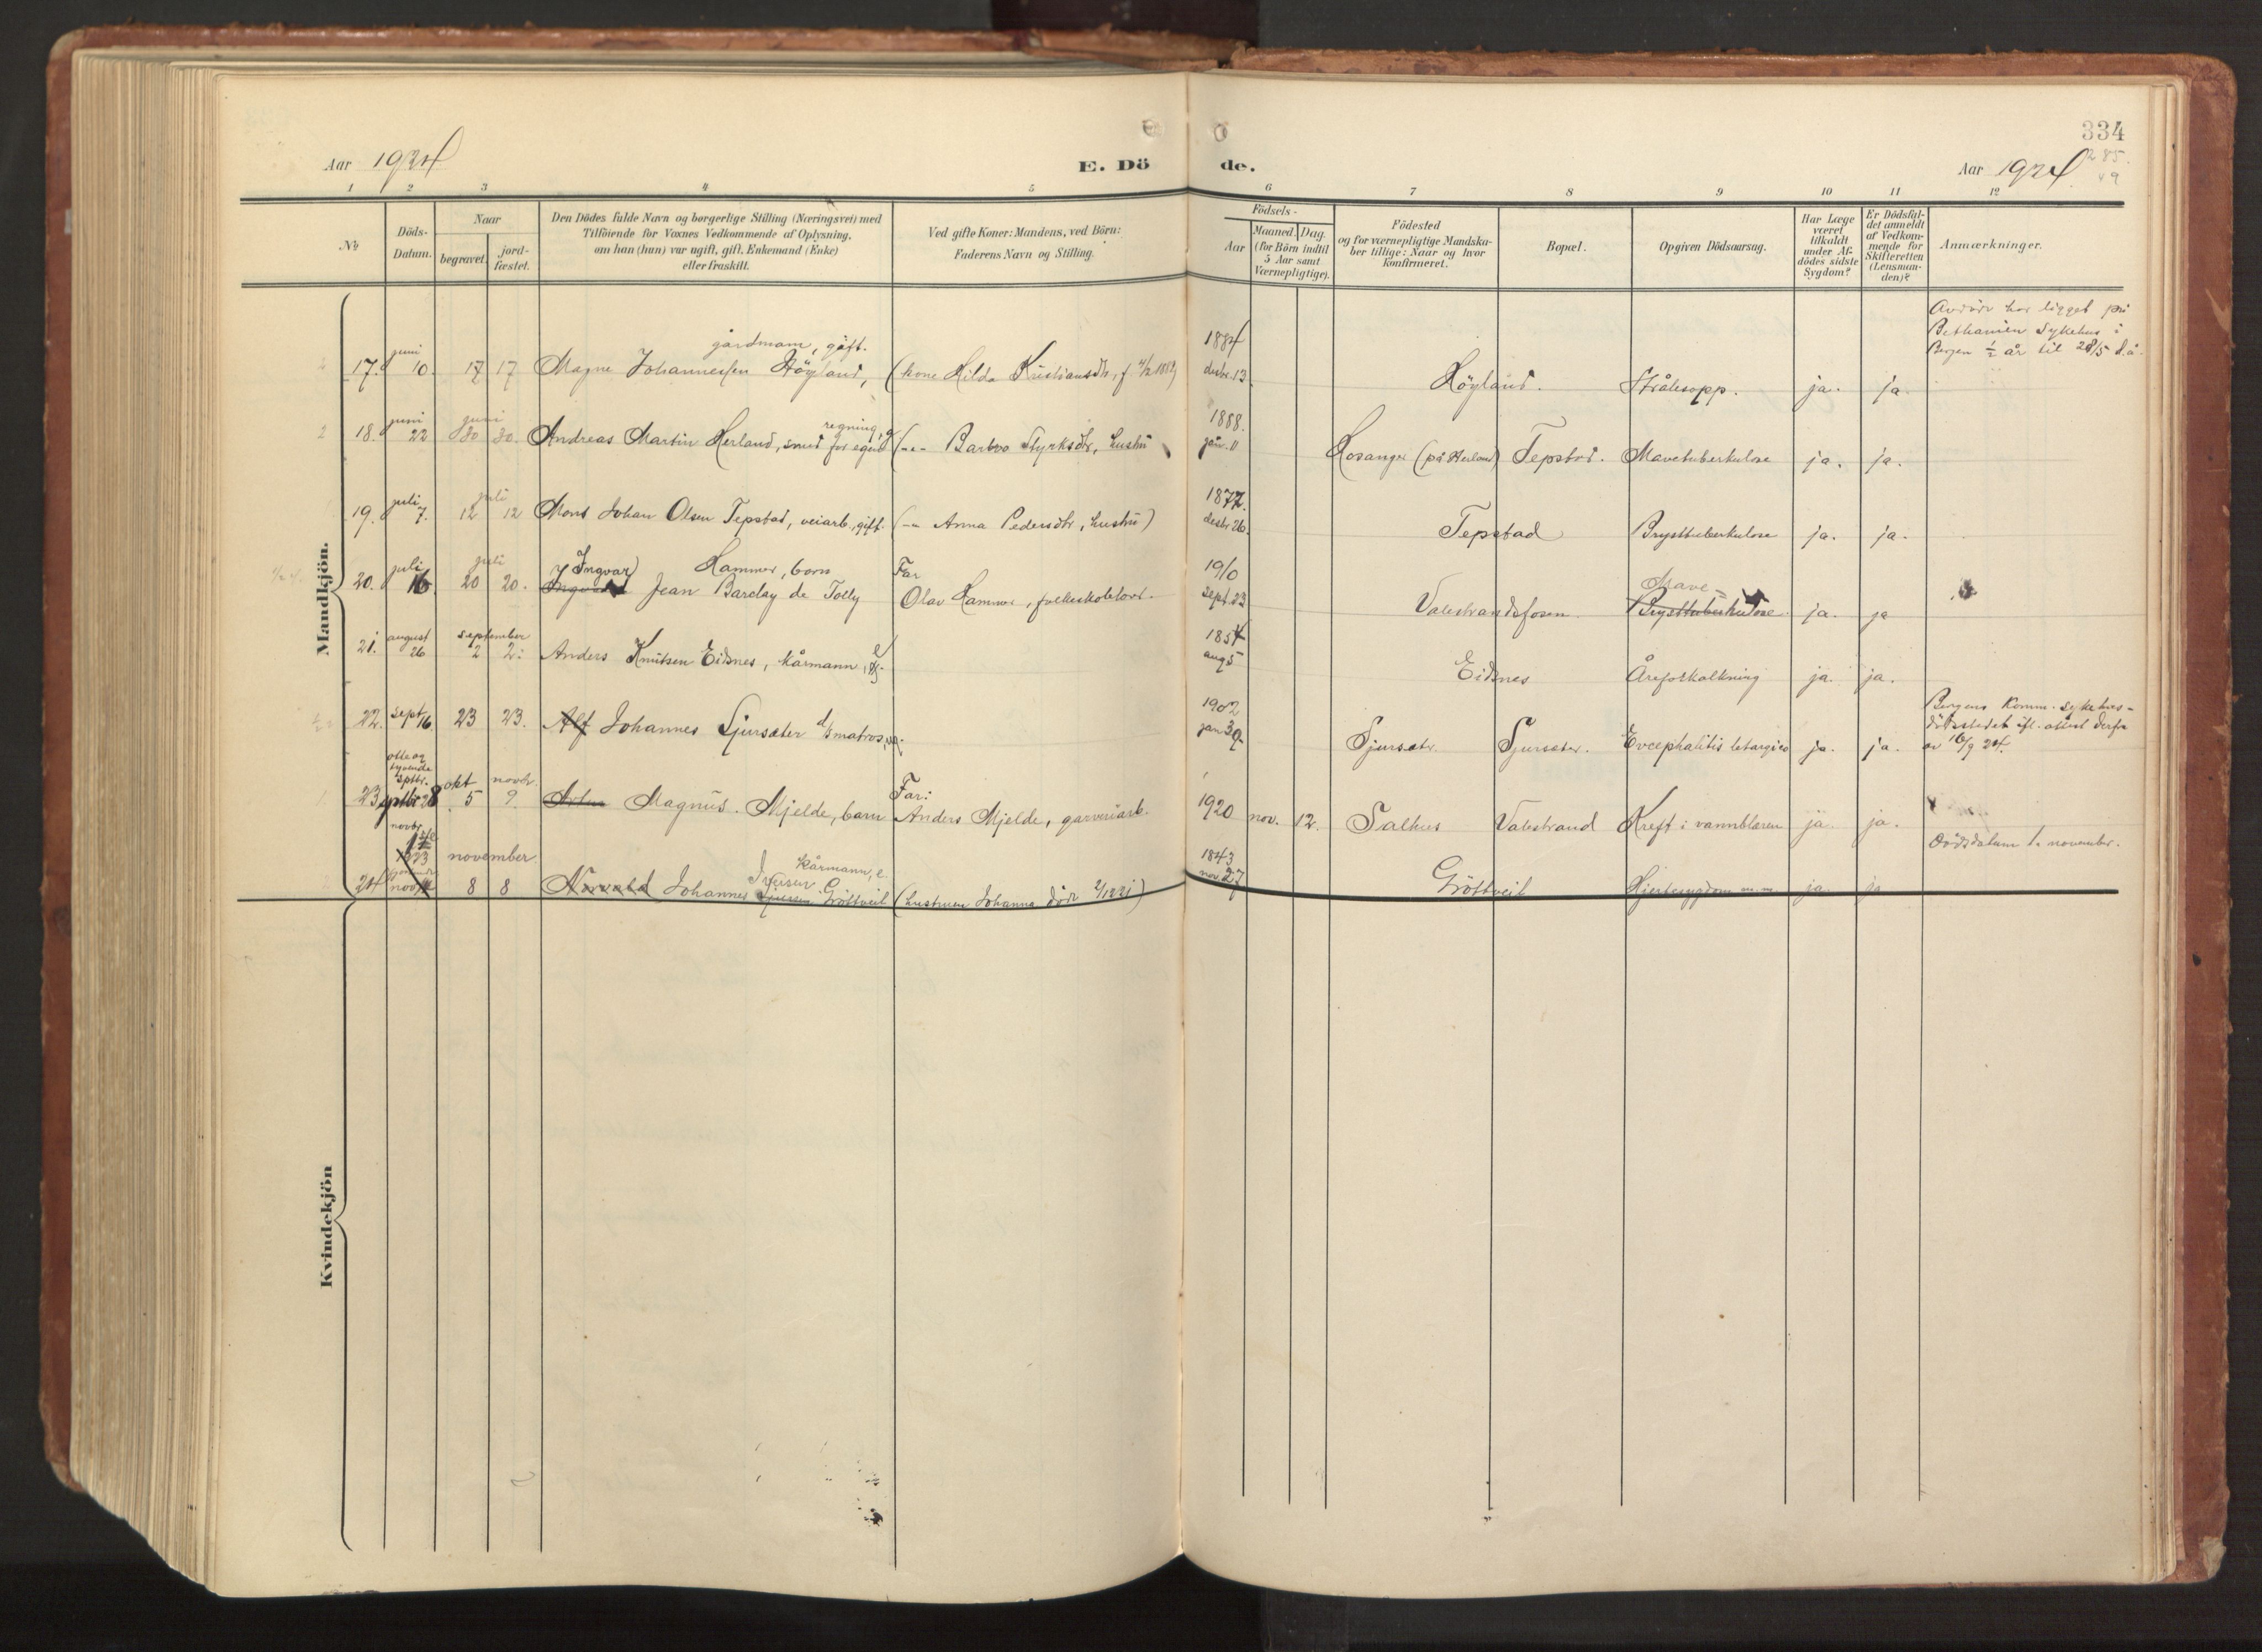 334
285.
Aar 1924
E. Dö
de.
Aar 1924
1 2 3 4 5 6 7 8 9 10 11 12
No
Döds-
Datum.
Naar
begravet.
jord-
fæstet.
Den Dödes fulde Navn og borgerlige Stilling (Næringsvei) med
Tilföiende for Voxnes Vedkommende af Oplysning,
om han (hun) var ugift, gift, Enkemand (Enke)
eller fraskilt.
Ved gifte Koner: Mandens, ved Börn:
Faderens Navn og Stilling.
Födsels-
Aar
Maaned. Dag.
(for Börn indtil
5 Aar samt
Værnepligtige).
Födested
og for værnepligtige Mandska-
ber tillige: Naar og hvor
Konfirmeret.
Bopæl.
Opgiven Dödsaarsag.
Har Læge
været
tilkaldt
under Af-
dödes sidste
Sygdom?
Er Dödsfal-
det anmeldt
af Vedkom-
mende for
Skifteretten
(Lensman-
den)?
Anmærkninger.
Mandkjön.
Avdöde har ligget på
Bethanien Sykehus i
Bergen ½ år til 28/5 d.å.
juni gårdmann, gift. 1884
17. 10. 17 17 Magne Johannessen Höyland, (kone Hilda Kristiansdtr, f desbr. 13 Höyland. Strålesopp. ja. ja.
juni juni regning, g 1888.
18. 22 30 30. Andreas Martin Herland, smed for egen (-"- Barbro Styrksdtr, hustru jan. 11 Hosanger (på Herland) Tepstad. Mavetuberkulose ja. ja.
juli juli 1872.
19. 7. 12 12 Mons Johan Olsen Tepstad, veiarb., gift. (-"- Anna Pedersdtr, hustru) desbr 26. Tepstad Brysttuberkulose ja. ja.
juli juli Ingvar Hammer, barn Far 1910 Mave-
20. 16. 20 20. Ingvald Jean Barclay de Tolly Olav Hammer, folkeskolelær. sept. 23 Valestrandsfossen. Brysttuberkulose. ja. ja
august september e 1854
21. 26 2 2. Anders Knutsen Eidsnes, kårmann, aug 5 Eidsnes Åreforkalkning ja. ja.
1902
22. sept 16 23 23. Alf Johannes Sjursæter matros, ug. jan 30. Sjursæter. Sjursæter. Encephalitis letargica ja. ja.
Bergens Komm. sykehus-
dödsstedet ifl. attest derfra
av 16/9 24.
otte og
tyvende
septbr. okt novbr. Far:
23 septbr 28 5 9. Artur Magnus. Mjelde, barn Anders Mjelde, garveriarb. 1920 nov. 12. Salhus Valestrand Kreft i vannblæren ja. ja.
Dödsdatum 1. november.
novbr.
1ste
1923 november Iversen kårmann, e 1843
24 nov 8 8 Norvald Johannes Sjursen Gröttveit (hustruen Johanna död 2/12 21) nov. 27 Gröttveit Hjertesygdom m.m. ja. ja
Kvindekjön